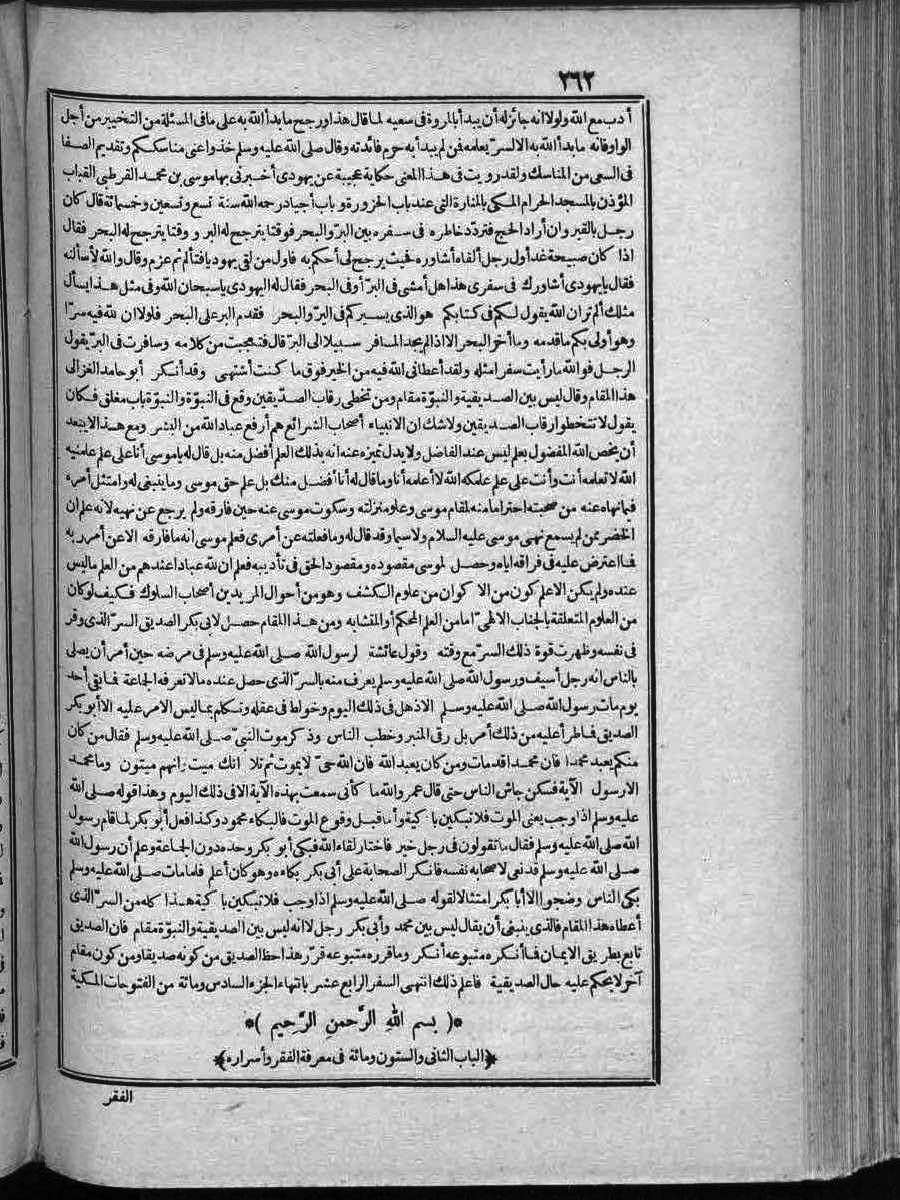 ٢٦٢
أدب مع الله ولولا انه جائز له أن يبدأ بالمروة فى سعيه لما قال هذا ورجح ما بدأ الله به على ما فى المسئلة من التخيير من أجل
الواو فانه ما بدأ الله به الا لسر يعلمه فمن لم يبدأ به حرم فائدته وقال صلى الله عليه وسلم خذوا عنى مناسككم وتقديم الصفا
فى السعى من المناسك ولقد رويت فى هذا المعنى حكاية عجيبة عن يهودى أخبرنى بها موسى بن محمد القرطبى القباب
المؤذن بالمسجد الحرام المكى بالمنارة التى عند باب الحزورة وباب أجياد رحمه الله سنة تسع وتسعين وخمسمائة قال كان
رجل بالقيروان أراد الحج فتردد خاطره فى سفره بين البر والبحر فوقتا يترجح له البر ووقتا يترجح له البحر فقال
اذا كان صبيحة غد أول رجل ألقاه أشاوره فحيث يرجح لى أحكم به فاول من لقى يهوديا فتألم ثم عزم وقال والله لأسألنه
فقال يا يهودى أشاورك فى سفرى هذا هل أمشى فى البر أو فى البحر فقال له اليهودى يا سبحان الله وفى مثل هذا يسأل
مثلك ألم تر ان الله يقول لكم فى كتابكم هو الذى يسيركم فى البر والبحر فقدم البر على البحر فلولا ان لله فيه سرا
وهو أولى بكم ما قدمه وما أخر البحر الا اذا لم يجد المسافر سبيلا الى البر قال فتعجبت من كلامه وسافرت فى البر يقول
الرجل فوالله ما رأيت سفرا مثله ولقد أعطانى الله فيه من الخير فوق ما كنت أشتهى وقد أنكر أبو حامد الغزالى
هذا المقام وقال ليس بين الصديقية والنبوّة مقام ومن تخطى رقاب الصدّيقين وقع فى النبوّة والنبوّة باب مغلق فكان
يقول لا تتخطوا رقاب الصديقين ولا شك ان الانبياء أصحاب الشرائع هم أرفع عباد الله من البشر ومع هذا لا يبعد
أن يخص الله المفضول بعلم ليس عند الفاضل ولا يدل تميزه عنه انه بذلك العلم أفضل منه بل قال له يا موسى أنا على علم علمنيه
الله لا تعلمه أنت وأنت على علم علمكه الله لا أعلمه أنا وما قال له أنا أفضل منك بل علم حق موسى وما ينبغى له وامتثل أمره
فيما نهاه عنه من صحبته احتراما منه لمقام موسى وعلو منزلته وسكوت موسى عنه حين فارقه ولم يرجع عن نهيه لانه علم ان
الخضر ممن لم يسمع نهى موسى عليه السلام ولا سيما وقد قال له وما فعلته عن أمرى فعلم موسى انه ما فارقه الا عن أمر ربه
فما اعترض عليه فى فراقه اياه وحصل لموسى مقصوده ومقصود الحق فى تأديبه فعلم ان لله عبادا عندهم من العلم ما ليس
عنده ولم يكن الا علم كون من الا كوان من علوم الكشف وهو من أحوال المريدين أصحاب السلوك فكيف لو كان
من العلوم المتعلقة بالجناب الالهى اما من العلم المحكم أو المتشابه ومن هذا المقام حصل لابى بكر الصديق السر الذى وقر
فى نفسه وظهرت قوة ذلك السر مع وقته وقول عائشة لرسول الله صلى الله عليه وسلم فى مرضه حين أمر أن يصلى
بالناس انه رجل أسيف ورسول الله صلى الله عليه وسلم يعرف منه بالسر الذى حصل عنده ما لا تعرفه الجماعة فما بقى أحد
يوم مات رسول الله صلى الله عليه وسلم الا ذهل فى ذلك اليوم وخولط فى عقله وتكلم بما ليس الامر عليه الا أبو بكر
الصديق فما طرأ عليه من ذلك أمر بل رقى المنبر وخطب الناس وذكر موت النبىّ صلى الله عليه وسلم فقال من كان
منكم يعبد محمدا فان محمدا قد مات ومن كان يعبد الله فان الله حىّ لا يموت ثم تلا انك ميت وانهم ميتون وما محمد
الا رسول الآية فسكن جاش الناس حتى قال عمر والله ما كأنى سمعت بهذه الآية الا فى ذلك اليوم وهذا قوله صلى الله
عليه وسلم اذا وجب يعنى الموت فلا تبكين باكية وأما قبل وقوع الموت فالبكاء محمود وكذا فعل أبو بكر لما قام رسول
الله صلى الله عليه وسلم فقال ما تقولون فى رجل خير فاختار لقاء الله فبكى أبو بكر وحده دون الجماعة وعلم أن رسول الله
صلى الله عليه وسلم قد نعى لاصحابه نفسه فانكر الصحابة على أبى بكر بكاءه وهو كان أعلم فلما مات صلى الله عليه وسلم
بكى الناس وضجوا الا أبا بكر امتثالا لقوله صلى الله عليه وسلم اذا وجب فلا تبكين باكية هذا كله من السر الذى
أعطاه هذا المقام فالذى ينبغى أن يقال ليس بين محمد وأبى بكر رجل لا انه ليس بين الصديقية والنبوّة مقام فان الصديق
تابع بطريق الايمان فما أنكره متبوعه أنكر وما قرره متبوعه قرّر هذا حظ الصديق من كونه صديقا ومن كون مقام
آخر لا يحكم عليه حال الصديقية فاعلم ذلك انتهى السفر الرابع عشر بانتهاء الجزء السادس ومائة من الفتوحات المكية
*(بسم الله الرَّحمنِ الرَّحيم)*
﴿الباب الثانى والستون ومائة فى معرفة الفقر وأسراره﴾
الفقر